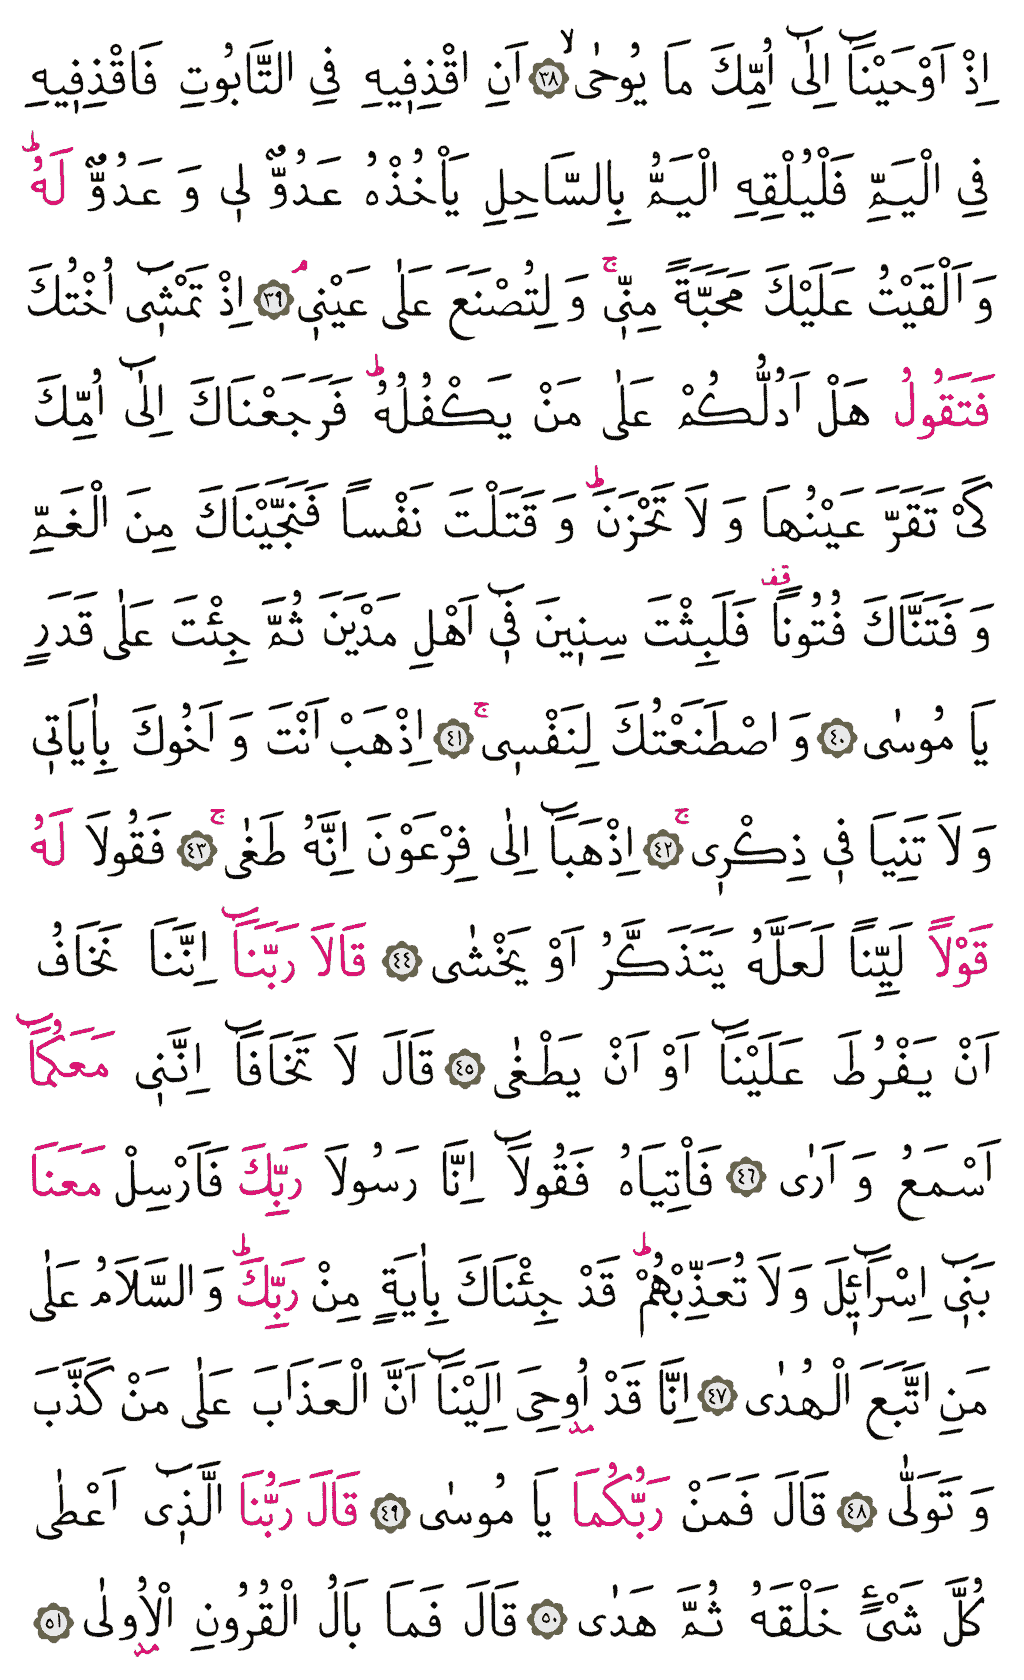 اِذْ اَوْحَيْنَٓا اِلٰٓى اُمِّكَ مَا يُوحٰىۙ ﴿٣٨﴾ اَنِ اقْذِف۪يهِ فِي التَّابُوتِ فَاقْذِف۪يهِ
فِي الْيَمِّ فَلْيُلْقِهِ الْيَمُّ بِالسَّاحِلِ يَأْخُذْهُ عَدُوٌّ ل۪ي وَ عَدُوٌّ لَهُۜ
وَ اَلْقَيْتُ عَلَيْكَ مَحَبَّةً مِنّ۪يۚ وَ لِتُصْنَعَ عَلٰى عَيْن۪يۢ ﴿٣٩﴾ اِذْ تَمْش۪ٓي اُخْتُكَ
فَتَقُولُ هَلْ اَدُلُّكُمْ عَلٰى مَنْ يَكْفُلُهُۜ فَرَجَعْنَاكَ اِلٰٓى اُمِّكَ
كَيْ تَقَرَّ عَيْنُهَا وَ لَا تَحْزَنَۜ وَ قَتَلْتَ نَفْساً فَنَجَّيْنَاكَ مِنَ الْغَمِّ
وَ فَتَنَّاكَ فُتُوناً۠ قف فَلَبِثْتَ سِن۪ينَ ف۪ٓي اَهْلِ مَدْيَنَ ثُمَّ جِئْتَ عَلٰى قَدَرٍ
يَا مُوسٰى ﴿٤٠﴾ وَ اصْطَنَعْتُكَ لِنَفْس۪يۚ ﴿٤١﴾ اِذْهَبْ اَنْتَ وَ اَخُوكَ بِاٰيَات۪ي
وَ لَا تَنِيَا ف۪ي ذِكْر۪يۚ ﴿٤٢﴾ اِذْهَبَٓا اِلٰى فِرْعَوْنَ اِنَّهُ طَغٰىۚ ﴿٤٣﴾ فَقُولَا لَهُ
قَوْلاً لَيِّناً لَعَلَّهُ يَتَذَكَّرُ اَوْ يَخْشٰى ﴿٤٤﴾ قَالَا رَبَّنَٓا اِنَّنَا نَخَافُ
اَنْ يَفْرُطَ عَلَيْنَٓا اَوْ اَنْ يَطْغٰى ﴿٤٥﴾ قَالَ لَا تَخَافَٓا اِنَّن۪ي مَعَكُمَٓا
اَسْمَعُ وَ اَرٰى ﴿٤٦﴾ فَأْتِيَاهُ فَقُولَٓا اِنَّا رَسُولَا رَبِّكَ فَاَرْسِلْ مَعَنَا
بَن۪ٓي اِسْرَٓائ۪يلَ وَ لَا تُعَذِّبْهُمْۜ قَدْ جِئْنَاكَ بِاٰيَةٍ مِنْ رَبِّكَۜ وَ السَّلَامُ عَلٰى
مَنِ اتَّبَعَ الْهُدٰى ﴿٤٧﴾ اِنَّا قَدْ اُو۫حِيَ اِلَيْنَٓا اَنَّ الْعَذَابَ عَلٰى مَنْ كَذَّبَ
وَ تَوَلّٰى ﴿٤٨﴾ قَالَ فَمَنْ رَبُّكُمَا يَا مُوسٰى ﴿٤٩﴾ قَالَ رَبُّنَا الَّذ۪ٓي اَعْطٰى
كُلَّ شَيْءٍ خَلْقَهُ ثُمَّ هَدٰى ﴿٥٠﴾ قَالَ فَمَا بَالُ الْقُرُونِ الْاُو۫لٰى ﴿٥١﴾